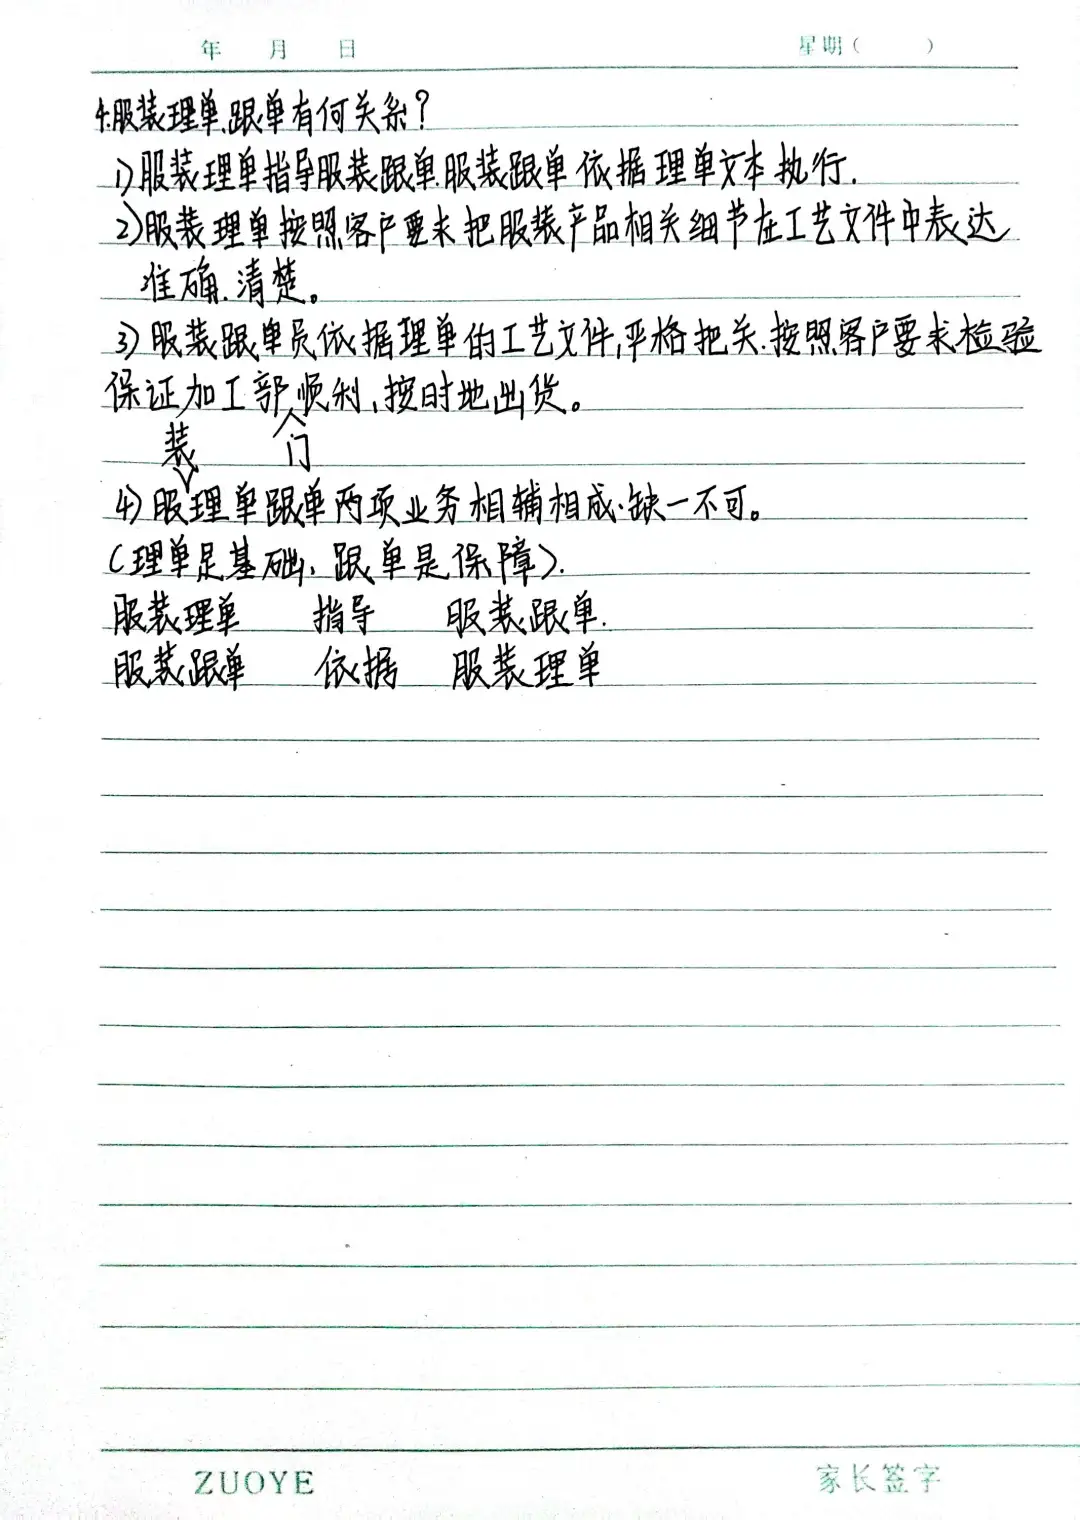 年 月 日 星期( )
4.服装理单、跟单有何关系?
1)服装理单指导服装跟单.服装跟单依据理单文本执行.
2)服装理单按照客户要求把服装产品相关细节在工艺文件中表达
准确.清楚。
3)服装跟单员依据理单的工艺文件,严格把关.按照客户要求检验
保证加工部门顺利,按时地出货。
4)服装理单跟单两项业务相辅相成.缺一不可。
(理单是基础、跟单是保障).
服装理单 指导 服装跟单.
服装跟单 依据 服装理单
ZUOYE 家长签字